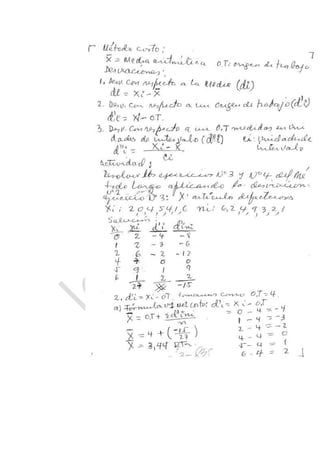 Método corto:
X̄ = Media aritmética O.T: origen de trabajo
Desviaciones:
1. Desv. con respecto a la Media (di)
di = Xi - X̄
2. Desv. con respecto a un origen de trabajo (d'i)
d'i = Xi - OT.
3. Desv. con respecto a un O.T medidas en uni
dades de intervalo (d''i) Ci: unidad de
d''i = Xi - X̄ / Ci intervalo
Actividad:
Resolver los ejercicios N°3 y N°4 del Mé
todo largo aplicando la desviación
N°2
Ejercicio N°3: X: artículos defectuosos
Xi: 2,0,4,5,1,6 ni: 6,2,4,9,3,2,1
Solución:
Xi ni d'i d'ini
0 2 -4 -8
1 2 -3 -6
2 6 -2 -12
4 7 0 0
5 9 1 9
6 1 2 2
27 -15
2. d'i = Xi - OT tomamos como O.T = 4.
a) Fórmula N°1 Met. corto: d'i = Xi - O.T
X̄ = O.T + Σd'ini / n
X̄ = 4 + (-15 / 27)
X̄ = 3,44
= 0 - 4 = -4
1 - 4 = -3
2 - 4 = -2
4 - 4 = 0
5 - 4 = 1
6 - 4 = 2